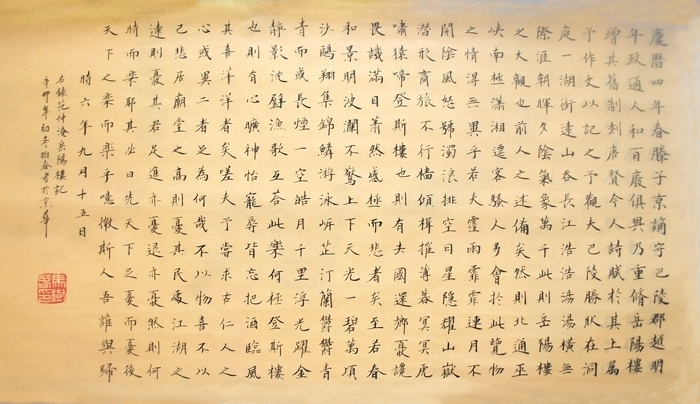 慶曆四年春滕子京謫守巴陵郡越明
年政通人和百廢俱興乃重脩岳陽樓
增其舊制刻唐賢今人詩賦於其上屬
予作文以記之予觀夫巴陵勝狀在洞
庭一湖銜遠山吞長江浩浩湯湯橫無
際涯朝暉夕陰氣象萬千此則岳陽樓
之大觀也前人之述備矣然則北通巫
峽南極瀟湘遷客騷人多會於此覽物
之情得無異乎若夫霪雨霏霏連月不
開陰風怒號濁浪排空日星隱耀山嶽
潛形商旅不行檣傾楫摧薄暮冥冥虎
嘯猿啼登斯樓也則有去國還鄉憂讒
畏譏滿目蕭然感極而悲者矣至若春
和景明波瀾不驚上下天光一碧萬頃
沙鷗翔集錦鱗游泳岸芷汀蘭鬱鬱青
青而或長煙一空皓月千里浮光躍金
靜影沈璧漁歌互答此樂何極登斯樓
也則有心曠神怡寵辱皆忘把酒臨風
其喜洋洋者矣嗟夫予嘗求古仁人之
心或異二者之為何哉不以物喜不以
己悲居廟堂之高則憂其民處江湖之
遠則憂其君是進亦憂退亦憂然則何
時而樂耶其必曰先天下之憂而憂後
天下之樂而樂乎噫微斯人吾誰與歸
時六年九月十五日
右錄范仲淹岳陽樓記
辛卯年初冬樹春書於京華